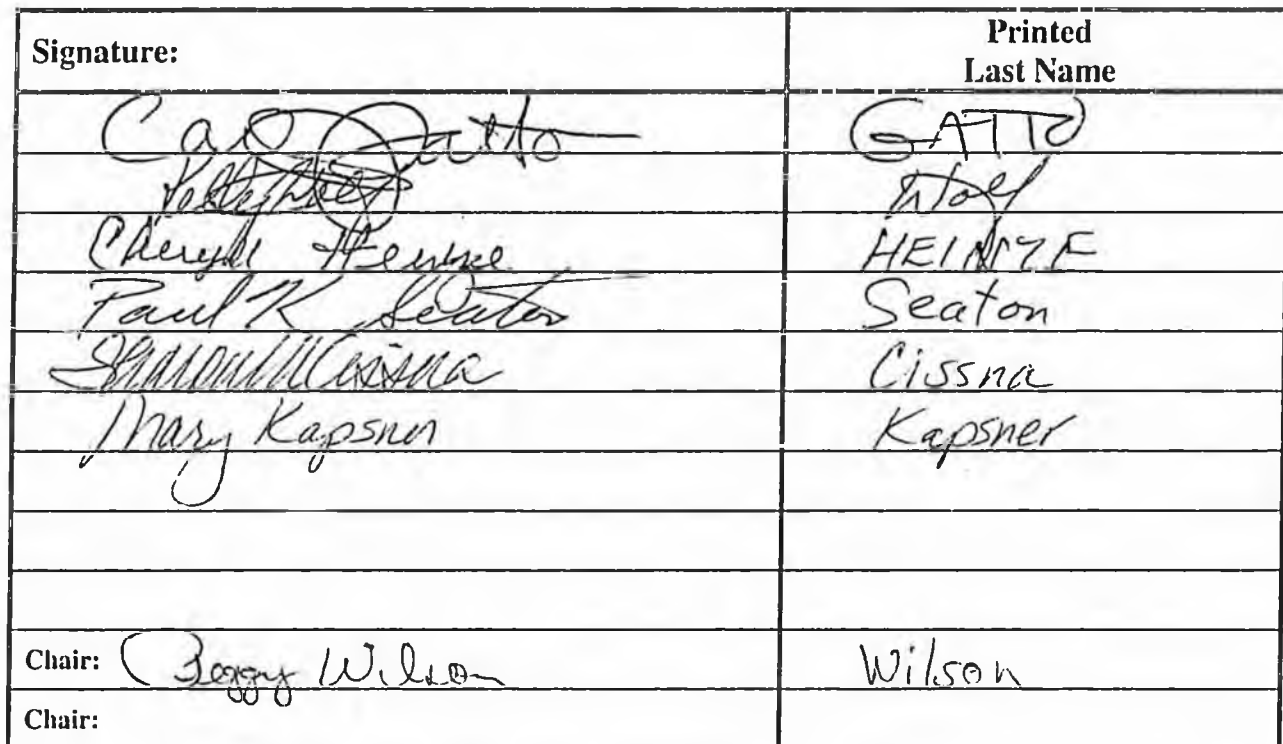 Signature: Printed Last Name
Carl Gatto GATTO
Wolf
Cheryll Heinze HEINZE
Paul K Seaton Seaton
Sharon M Cissna Cissna
Mary Kapsner Kapsner
Chair: Peggy Wilson Wilson
Chair: